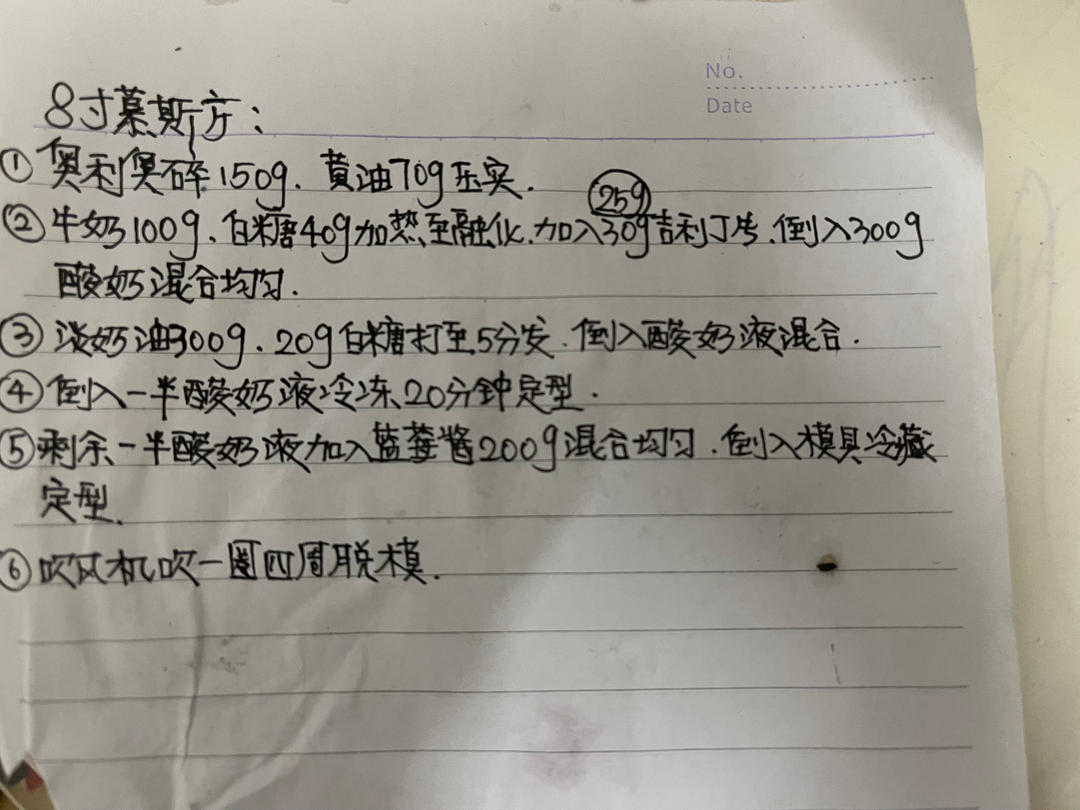 No.
Date
8寸慕斯方：
①奥利奥碎150g. 黄油70g压实.
25g
②牛奶100g.白糖40g加热至融化.加入30g吉利丁片.倒入300g
酸奶混合均匀.
③淡奶油300g.20g白糖打至5分发.倒入酸奶液混合.
④倒入一半酸奶液冷冻20分钟定型.
⑤剩余一半酸奶液加入蓝莓酱200g混合均匀.倒入模具冷藏
定型.
⑥吹风机吹一圈四周脱模.